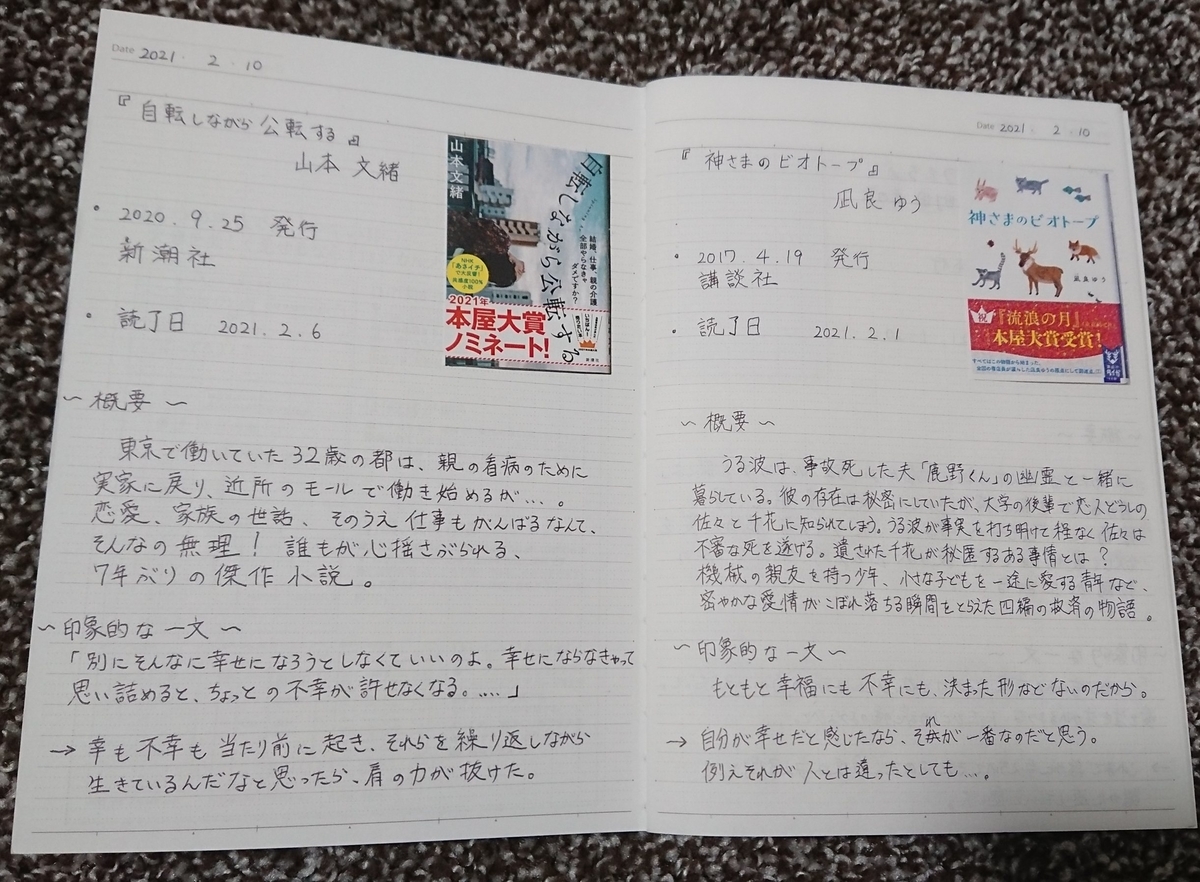 Date 2021 . 2 . 10
『自転しながら公転する』
山本 文緒
・ 2020 . 9 . 25 発行
新潮社
・ 読了日 2021 . 2 . 6
山本文緒
自転しながら公転する
結婚、仕事、親の介護
全部やらなきゃ
ダメですか?
NHK
「あさイチ」
で大反響!
共感度100%
小説
2021年
本屋大賞
ノミネート!
新潮社
~ 概要 ~
東京で働いていた32歳の都は、親の看病のために
実家に戻り、近所のモールで働き始めるが…。
恋愛、家族の世話、そのうえ仕事もがんばるなんて、
そんなの無理! 誰もが心揺さぶられる、
7年ぶりの傑作小説。
~ 印象的な一文 ~
「別にそんなに幸せになろうとしなくていいのよ。幸せにならなきゃって
思い詰めると、ちょっとの不幸が許せなくなる。……」
→ 幸も不幸も当たり前に起き、それらを繰り返しながら
生きているんだなと思ったら、肩の力が抜けた。
Date 2021 2 . 10
『神さまのビオトープ』
凪良 ゆう
・ 2017 . 4 . 19 発行
講談社
・ 読了日 2021 . 2 . 1
神さまのビオトープ
凪良ゆう
祝
『流浪の月』
本屋大賞受賞!
すべてはこの物語から始まった。
~ 概要 ~
うる波は、事故死した夫「鹿野くん」の幽霊と一緒に
暮らしている。彼の存在は秘密にしていたが、大学の後輩で恋人どうしの
佐々と千花に知られてしまう。うる波が事実を打ち明けて程なく佐々は
不審な死を遂げる。遺された千花が秘匿するある事情とは?
機械の親友を持つ少年、小さな子どもを一途に愛する青年など、
密やかな愛情がこぼれ落ちる瞬間をとらえた四編の救済の物語。
~ 印象的な一文 ~
もともと幸福にも不幸にも、決まった形などないのだから。
→ 自分が幸せだと感じたなら、それが一番なのだと思う。
例えそれが人とは違ったとしても…。